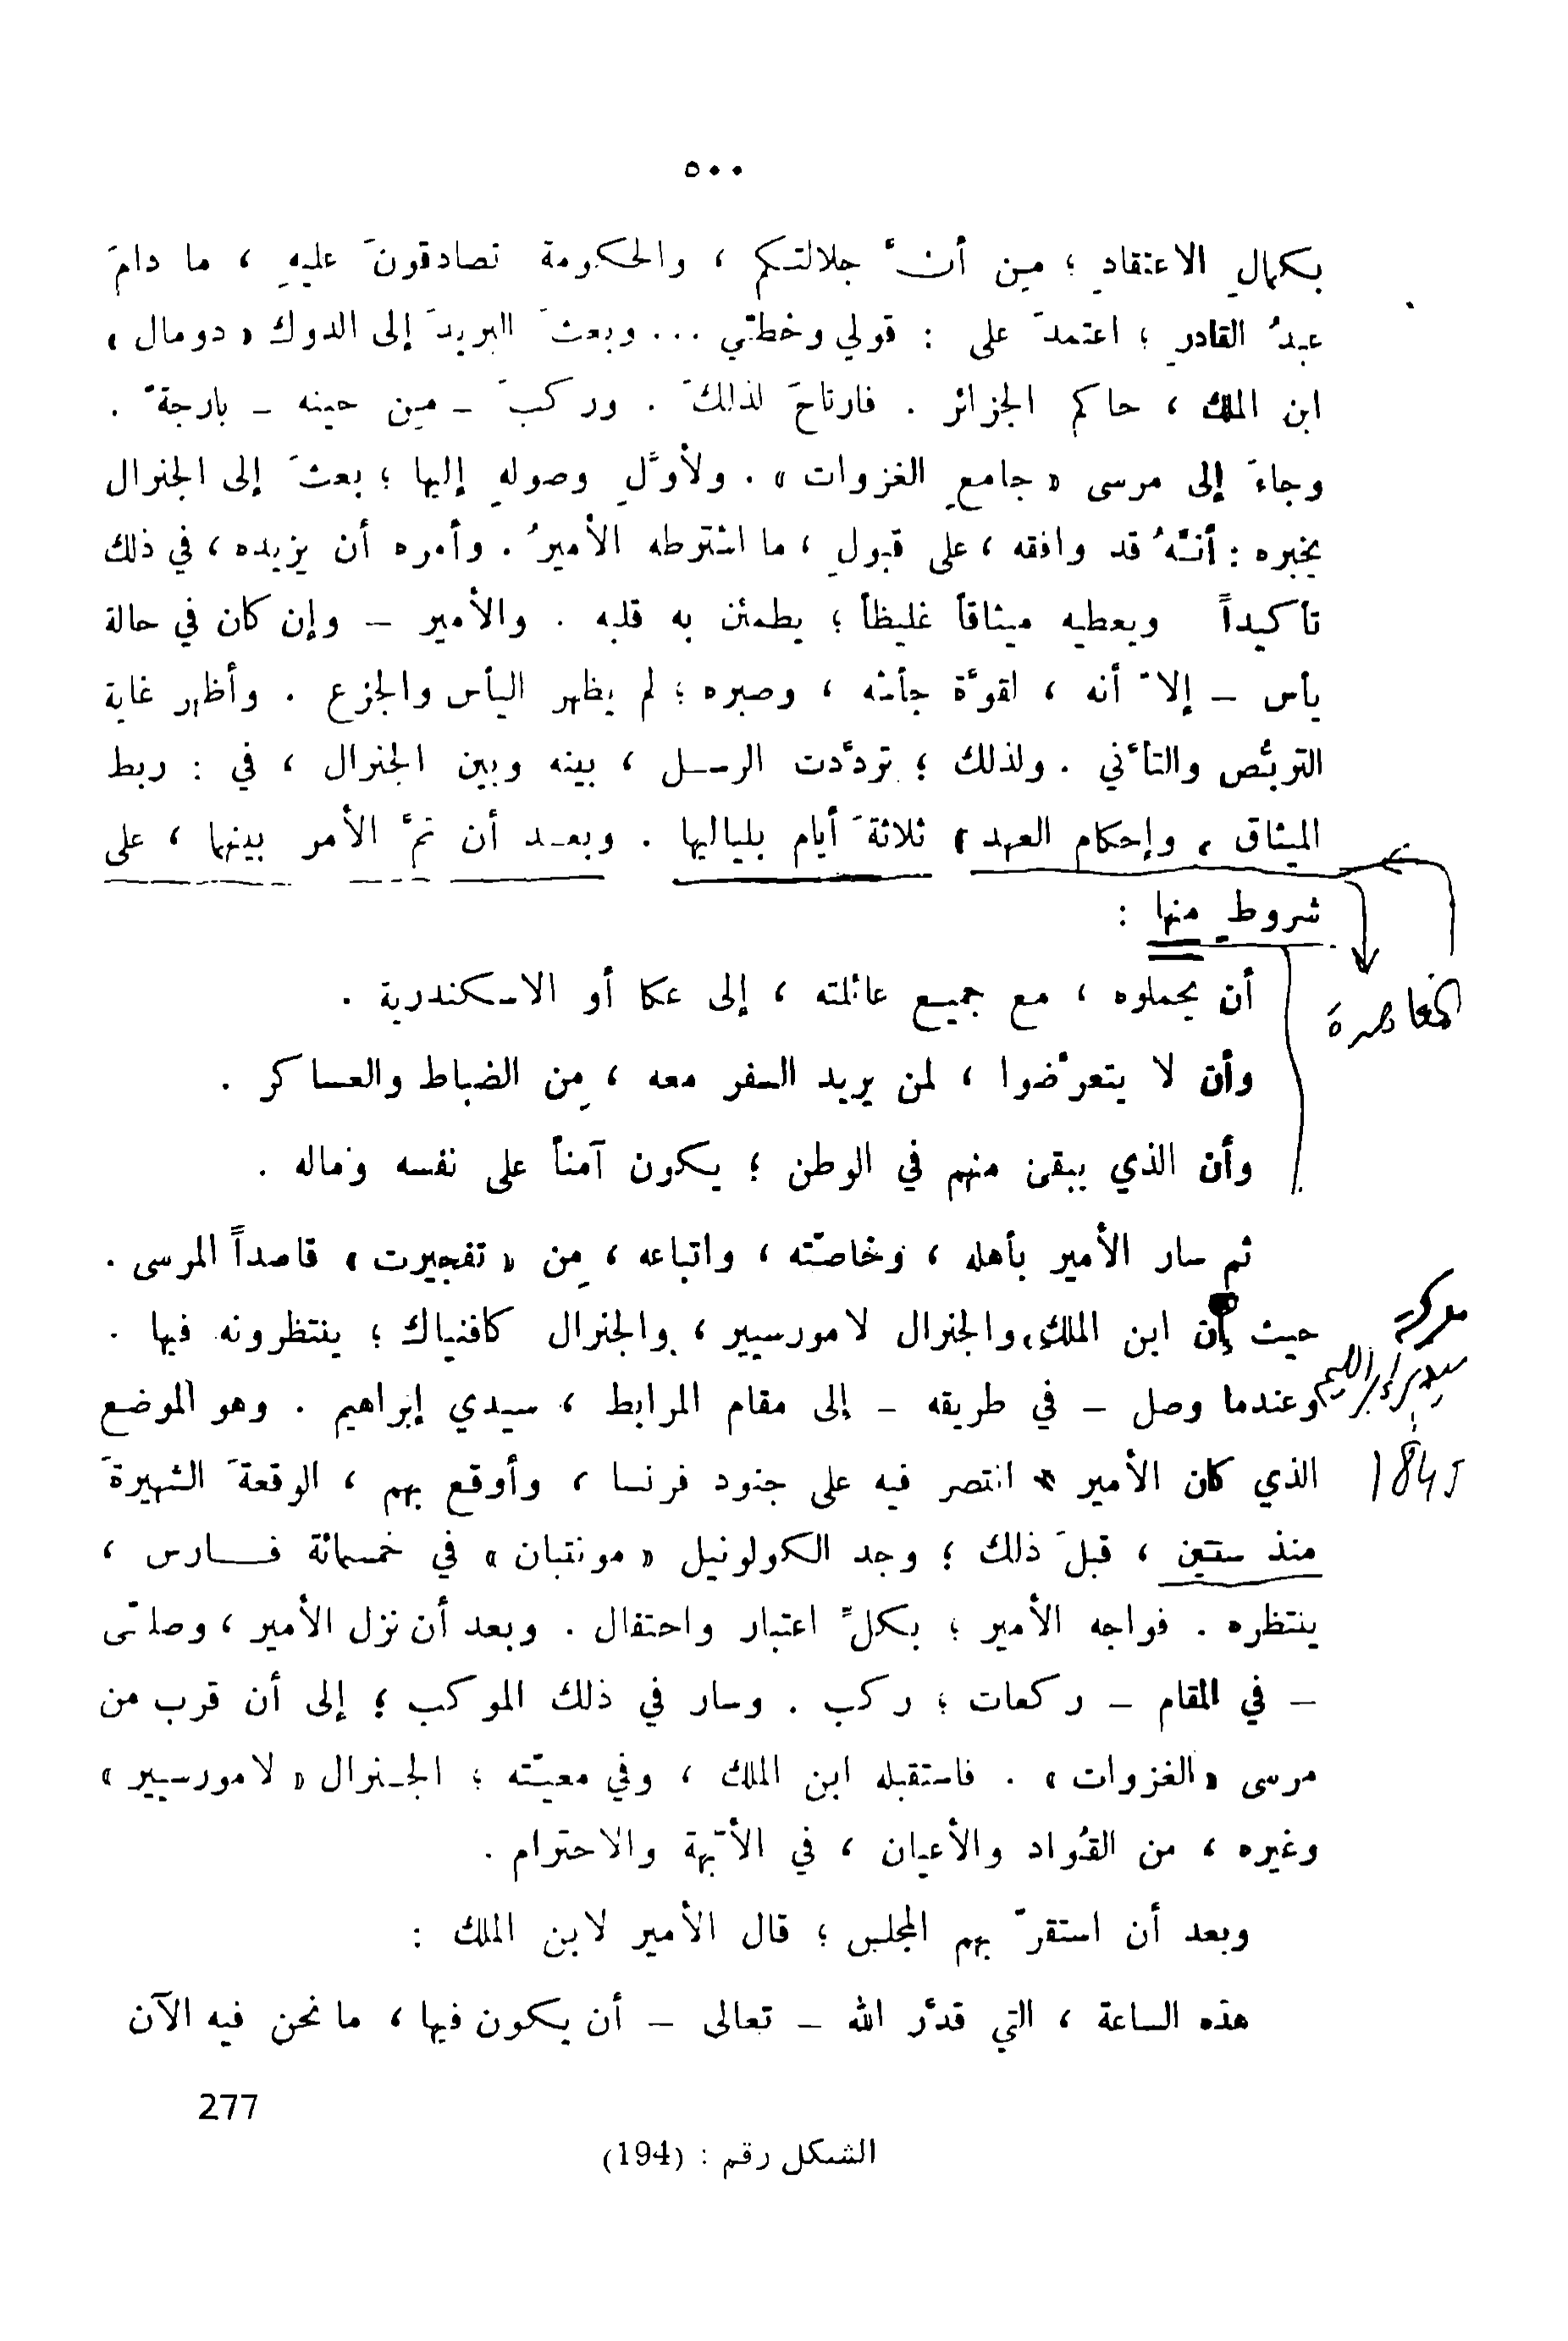 ٥٠٠
بكمالِ الاعتقادِ ؛ مِن أنَّ جلالتكم ، والحكومة تصادقونَ عليهِ ، ما دامَ
عبدُ القادرِ ؛ اعتمدَ على : قولي وخطتي ... وبعثَ البريدَ إلى الدوك « دومال »
ابن الملك ، حاكم الجزائر . فارتاحَ لذلكَ . وركبَ – مِن حينه – بارجةً .
وجاءَ إلى مرسى « جامعِ الغزوات » . ولأوَّلِ وصولهِ إليها ؛ بعثَ إلى الجنرال
يخبره : أنَّهُ قد وافقه ، على قبولِ ، ما اشترطه الأميرُ . وأمره أن يزيده ، في ذلك
تأكيداً ويعطيه ميثاقاً غليظاً ؛ يطمئن به قلبه . والأمير – وإن كان في حالة
يأس – إلاّ أنه ، لقوَّة جأشه ، وصبره ؛ لم يظهر اليأس والجزع . وأظهر غاية
التربُّص والتأنّي . ولذلك ؛ تردَّدت الرسل ، بينه وبين الجنرال ، في : ربط
الميثاق ، وإحكام العهد ، ثلاثةَ أيام بلياليها . وبعد أن تمَّ الأمر بينهما ، على
شروطٍ منها :
أن يحملوه ، مع جميع عائلته ، إلى عكا أو الاسكندرية .
المعاهدة
وأن لا يتعرَّضوا ، لمن يريد السفر معه ، مِن الضباط والعساكر .
وأن الذي يبقى منهم في الوطن ؛ يكون آمناً على نفسه وماله .
ثم سار الأمير بأهله ، وخاصّته ، واتباعه ، مِن « تفجيرت » قاصداً المرسى .
حيث إن ابن الملك، والجنرال لامورسيير ، والجنرال كافنياك ؛ ينتظرونه فيها .
معركة
سيدي إبراهيم
وعندما وصل – في طريقه – إلى مقام المرابط ، سيدي إبراهيم . وهو الموضع
الذي كان الأمير * انتصر فيه على جنود فرنسا ، وأوقع بهم ، الوقعةَ الشهيرةَ
1845
منذ سنتين ، قبلَ ذلك ؛ وجد الكولونيل « مونتبان » في خمسمائة فارس ،
ينتظره . فواجه الأمير ؛ بكلِّ اعتبار واحتفال . وبعد أن نزل الأمير ، وصلّى
– في المقام – ركعات ؛ ركب . وسار في ذلك الموكب ؛ إلى أن قرب من
مرسى « الغزوات » . فاستقبله ابن الملك ، وفي معيّته ؛ الجنرال « لامورسيير »
وغيره ، من القُواد والأعيان ، في الأبّهة والاحترام .
وبعد أن استقرّ بهم المجلس ؛ قال الأمير لابن الملك :
هذه الساعة ، التي قدَّر الله – تعالى – أن يكون فيها ، ما نحن فيه الآن
277
الشكل رقم : (194)